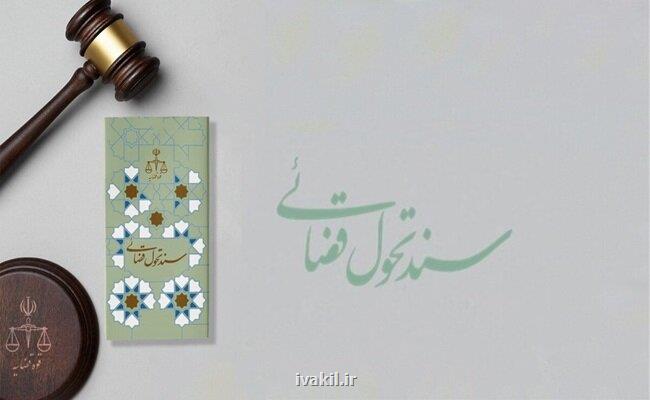 قوه قضاییه
سند تحول قضائی
سند تحول قضائی
قوه قضاییه
ivakil.ir